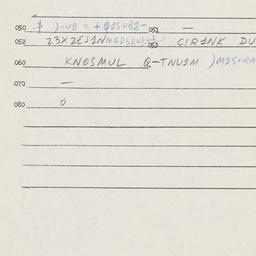 050 $ )-UB = +Q15UB2- 052 —
052 Z3XZEJ1N 053 CIRINK DU
060 KNOSMUL Q-TNUIM )M1S+RA
070 —
080 0